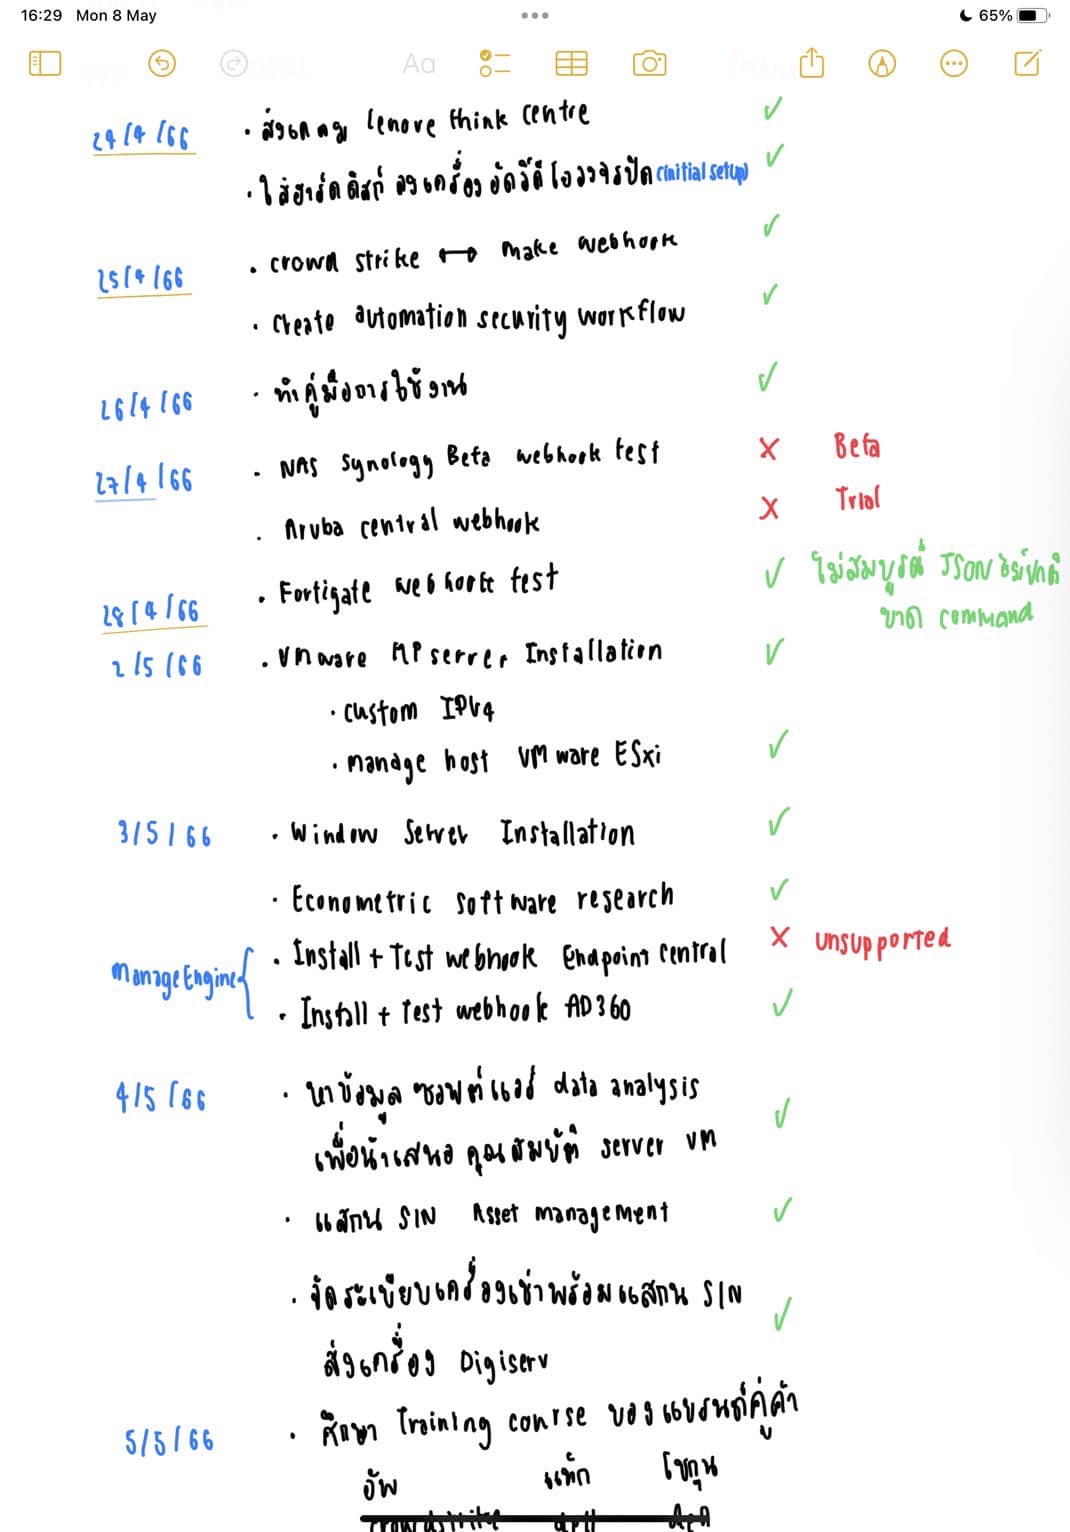 16:29 Mon 8 May
65%
Aa
24/4/66 · ส่งของ lenovo think centre ✓
· ใส่ฮาร์ดดิสก์ ลงเครื่อง อัดวีดีโอวงจรปิด (initial setup) ✓
25/4/66 · crowd strike ↔ make webhook ✓
· Create automation security workflow ✓
26/4/66 · ทำคู่มือการใช้งาน ✓
27/4/66 · NAS Synology Beta webhook test X Beta
· Aruba central webhook X Trial
28/4/66 · Fortigate webhook test ✓ ไม่สมบูรณ์ JSON
ขาด command
2/5/66 · VMware HP server Installation ✓
· custom IPV4
· manage host VMware ESxi ✓
3/5/66 · Window Server Installation ✓
· Econometric software research ✓
ManageEngine { · Install + Test webhook Endpoint Central X unsupported
· Install + Test webhook AD360 ✓
4/5/66 · หาข้อมูล ซอฟต์แวร์ data analysis
เพื่อนำเสนอ คุณสมบัติ server VM ✓
· แสกน S/N Asset management ✓
· จัดระเบียบเครื่องเช่าพร้อมแสกน S/N
ส่งเครื่อง Digiserv ✓
5/5/66 · ศึกษา Training course ของแบรนด์คู่ค้า
อัพ แท็ก โชกุน
crowdstrike dell